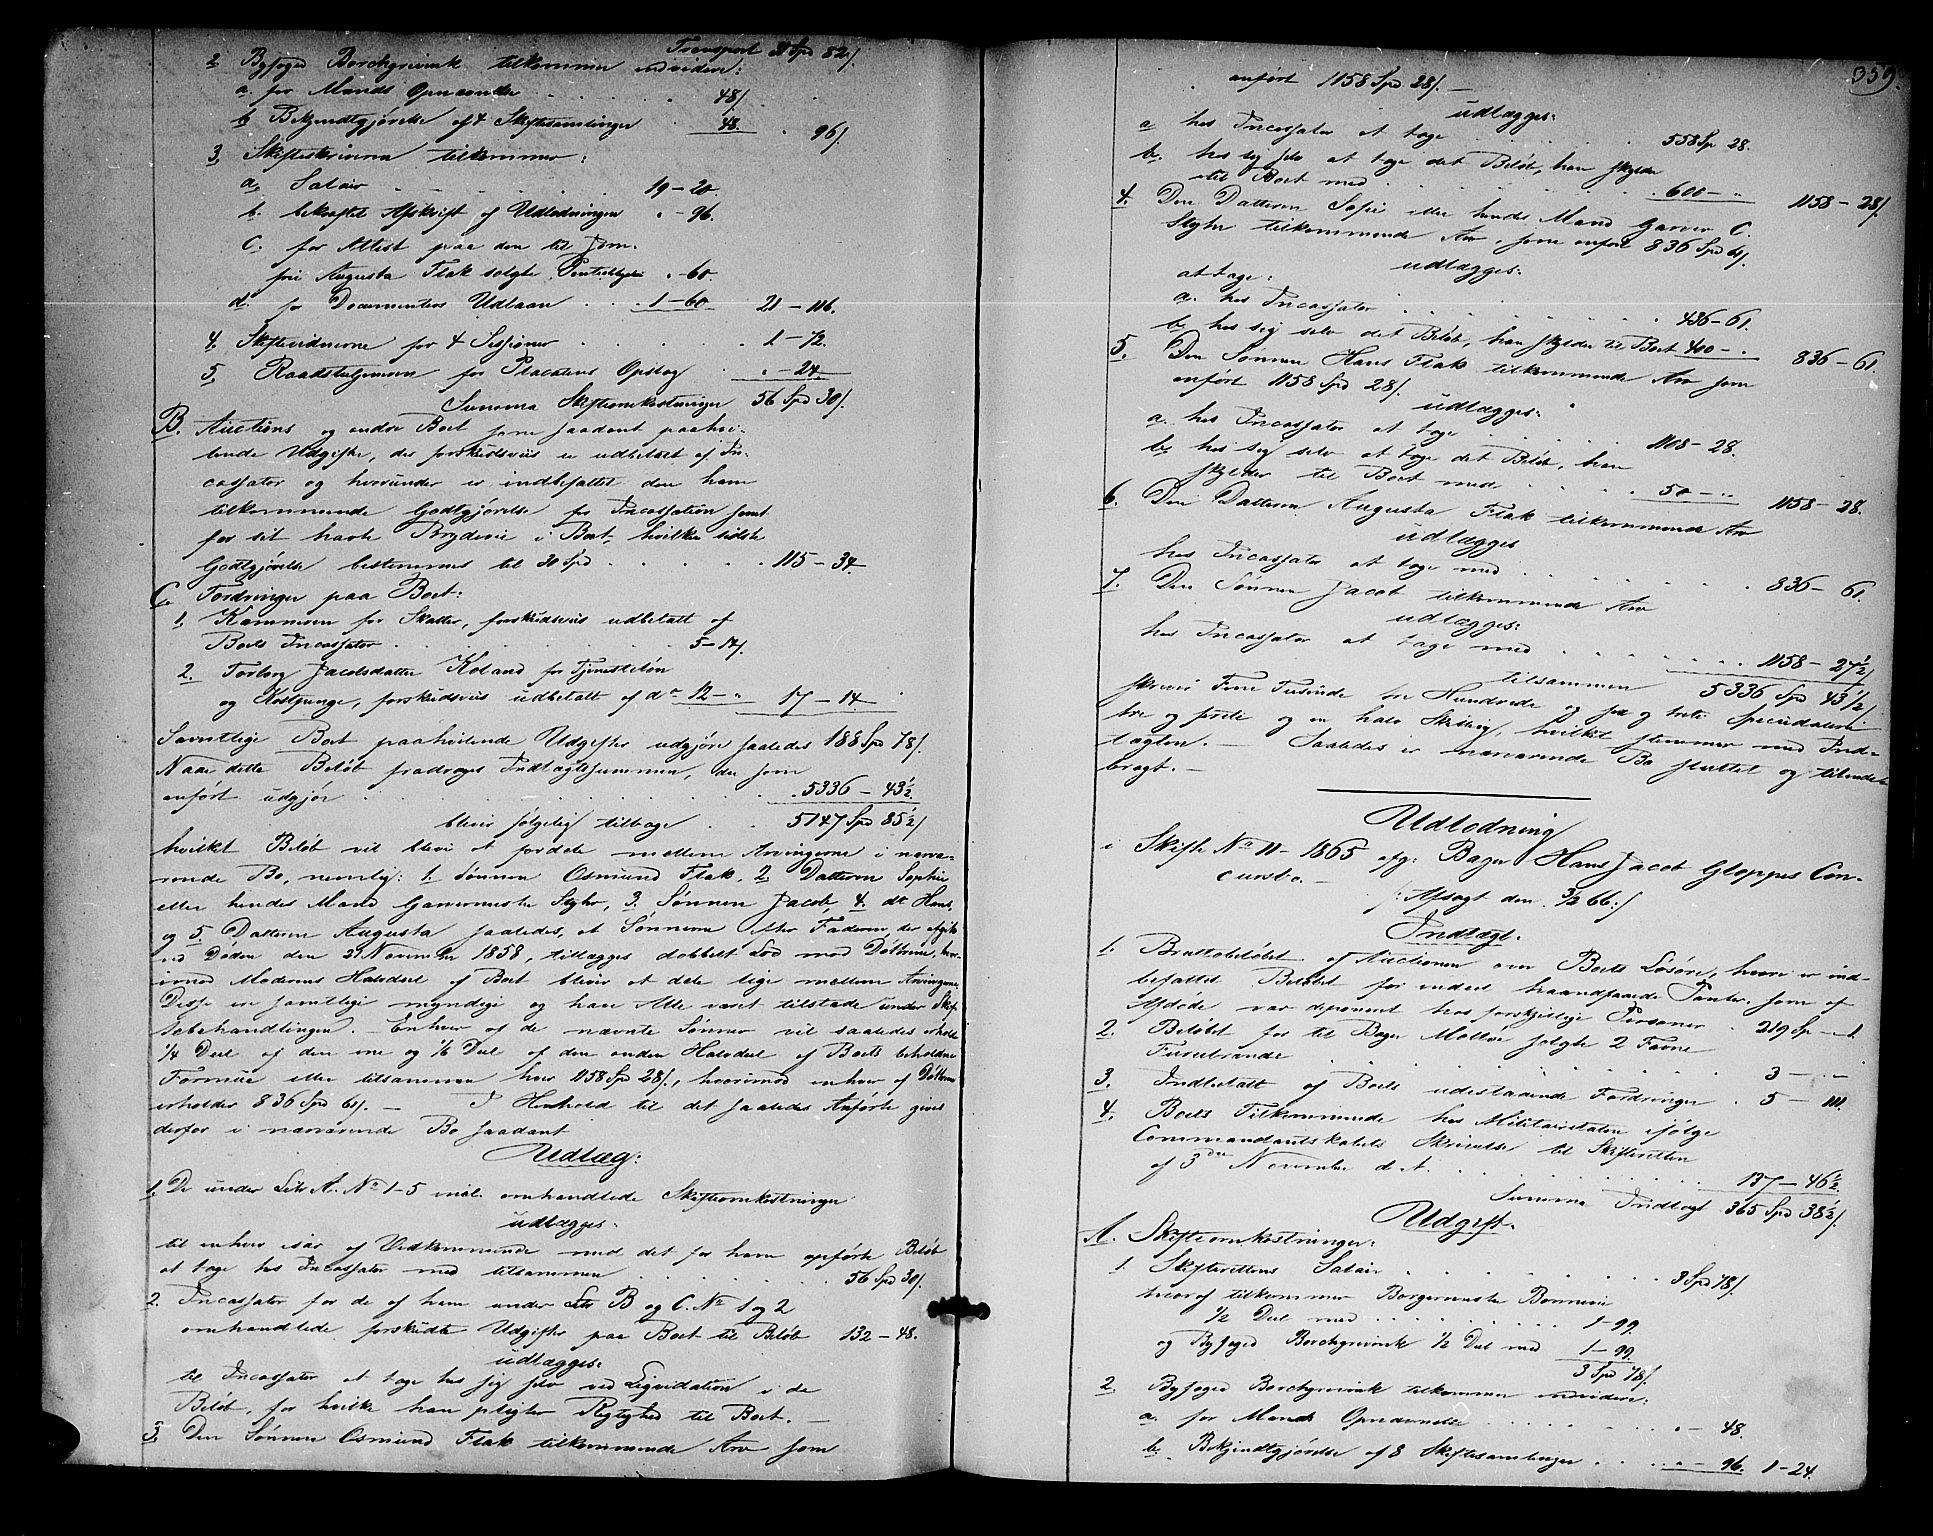 Transport 31 Spd 82/.
2 Byfoged Borchgrevink tilkommer endvidere:
a. for Mands Opnævnelse . . . 48/.
b Bekjendtgjørelse af 4 Skiftesamlinger . 48. . 96/.
3. Skifteskriveren tilkommer:
a. Salair . . . 19 - 20.
b. bekræftet Afskrift af Udlodningen " - 96.
c. for Attest paa den til Jom-
fru Augusta Flak solgte " - 60.
d. for Documenters Udlaan . . . 1 - 60 21 - 116.
4. Skiftevidnerne for 4 Sessioner . . . 1 - 72.
5. Raadstuetjeneren for Placatens Opslag . " - 24.
Summa Skifteomkostninger 56 Spd 30/.
B. Auctions og andre Boet som saadant paahvi-
lende Udgifter, der forskudsviis er udbetalt af In-
cassator og hvorunder er indbefattet den ham
tilkommende Godtgjørelse for Incassation samt
for sit havte Bryderie i Boet, hvilken sidste
Godtgjørelse bestemmes til 30 Spd . . . 115 - 34.
C. Fordringer paa Boet:
1. Kæmneren for Skatter, forskudsviis udbetalt af
Boets Incassator . . . 5 - 14/.
2. Torborg Jacobsdatter Koland for Tjenesteløn
og Kostpenge, forskudsviis udbetalt af do 12 - " 17 - 14.
Samtlige Boet paahvilende Udgifter udgjør saaledes 188 Spd 78/.
Naar dette Beløb fradrages Indtægtssummen, der som
anført udgjør . . . 5336 - 43½
bliver følgelig tilbage . . 5147 Spd 85½/
hvilket Beløb vil blive at fordele mellem Arvingerne i nærvæ-
rende Bo, nemlig: 1. Sønnen Osmund Flak, 2 Datteren Sophie
eller hendes Mand Garvermester Styhr, 3. Sønnen Jacob, 4. do Hans,
og 5. Datteren Augusta saaledes, at Sønnerne efter Faderen, der afgik
ved Døden den 2 November 1858, tillægges dobbelt Lod mod Døttrene, hvor-
imod Moderens Halvdeel af Boet bliver at dele lige mellem Arvingerne.
Disse ere samtlige myndige og have Alle været tilstæde under Skif-
tebehandlingen. - Enhver af de nævnte Sønner vil saaledes erholde
¼ Deel af den ene og ⅙ Deel af den anden Halvdeel af Boets beholdne
Formue eller tilsammen hver 1158 Spd 28/., hvorimod enhver af Døttrene
erholder 836 Spd 61/. - I Henhold til det saaledes Anførte gives
derfor i nærværende Bo saadant
Udlæg:
1. De under Litr A. No 1-5 incl. omhandlede Skifteomkostninger
udlægges:
til enhver især af Vedkommende med det for ham opførte Beløb
at tage hos Incassator med tilsammen . . . 56 Spd 30/.
2. Incassator for de af ham under Litr B og C. No 1 og 2
omhandlede forskudte Udgifter paa Boet til Beløb 132 - 48.
udlægges:
til Incassator at tage hos sig selv ved Liqvidation i de
Beløb, for hvilke han pligter Rigtighed til Boet. -
3. Den Sønnen Osmund Flak tilkommende Arv som
359.
anført 1158 Spd 28/. -
udlægges:
a hos Incassator at tage . . . 558 Sp 28.
b. hos sig selv at tage det Beløb, han skylder
til Boet med . . . 600 - " 1158 - 28/.
4. Den Datteren Sofie eller hendes Mand Garver C.
Styhr tilkommende Arv, som anført 836 Spd 61/.
udlægges:
at tage:
a. hos Incassator . . . 436 - 61.
b. hos sig selv det Beløb, han skylder til Boet 400 - " 836 - 61.
5. Den Sønnen Hans Flak tilkommende Arv som
anført 1158 Spd 28/.
udlægges:
a. hos Incassator at tage . . . 1108 - 28.
b. hos sig selv at tage det Beløb, han
skylder til Boet med . . . 50 - " 1158 - 28.
6. Den Datteren Augusta Flak tilkommende Arv
udlægges
hos Incassator at tage med . . . 836 - 61.
7. Den Sønnen Jacob tilkommende Arv
udlægges:
hos Incassator at tage med . . . 1158 - 27½/
tilsammen 5336 Spd 43½/
skriver Fem Tusinde tre Hundrede og sex og treti Speciedaler
tre og firti og en halv Skilling, hvilket stemmer med Ind-
tægten. - Saaledes er nærværende Bo sluttet og tilende-
bragt. -
Udlodning
i Skifte No 11 - 1865 afg: Bager Hans Jacob Gloppes Con-
cursbo. -
/: Afsagt den 3/2 66:/
Indtægt.
1. Bruttobeløbet af Auctionen over Boets Løsøre, hvori er ind-
befattet Beløbet for endeel haandfaaede Panter, som af
Afdøde var deponent hos forskjellige Personer . 219 Sp - 1.
2. Beløbet for til Bager Moltve solgte 2 Favne
Furubrænde . . . 3 - " -
3. Indbetalt af Boets udestaaende Fordringer . 5 - 111.
4. Boets Tilkommende hos Militairetaten ifølge
Commandantskabets Skrivelse til Skifteretten
af 3die November d. A. . . . 137 - 46½.
Summa Indtægt 365 Spd 38½/.
Udgift.
A. Skifteomkostninger:
1. Skifterettens Salair . . . 3 Spd 78/.
hvoraf tilkommer Borgermester Bonnevie
½ Deel med . . . 1 - 99.
og Byfoged Borchgrevink ½ Deel med 1 - 99.
3 Spd 78/.
2. Byfoged Borchgrevink tilkommer endvidere:
a. for Mands Opnævnelse . . . " - 48.
b. Bekjendtgjørelse af 8 Skiftesamlinger . . . " - 96. 1 - 24.